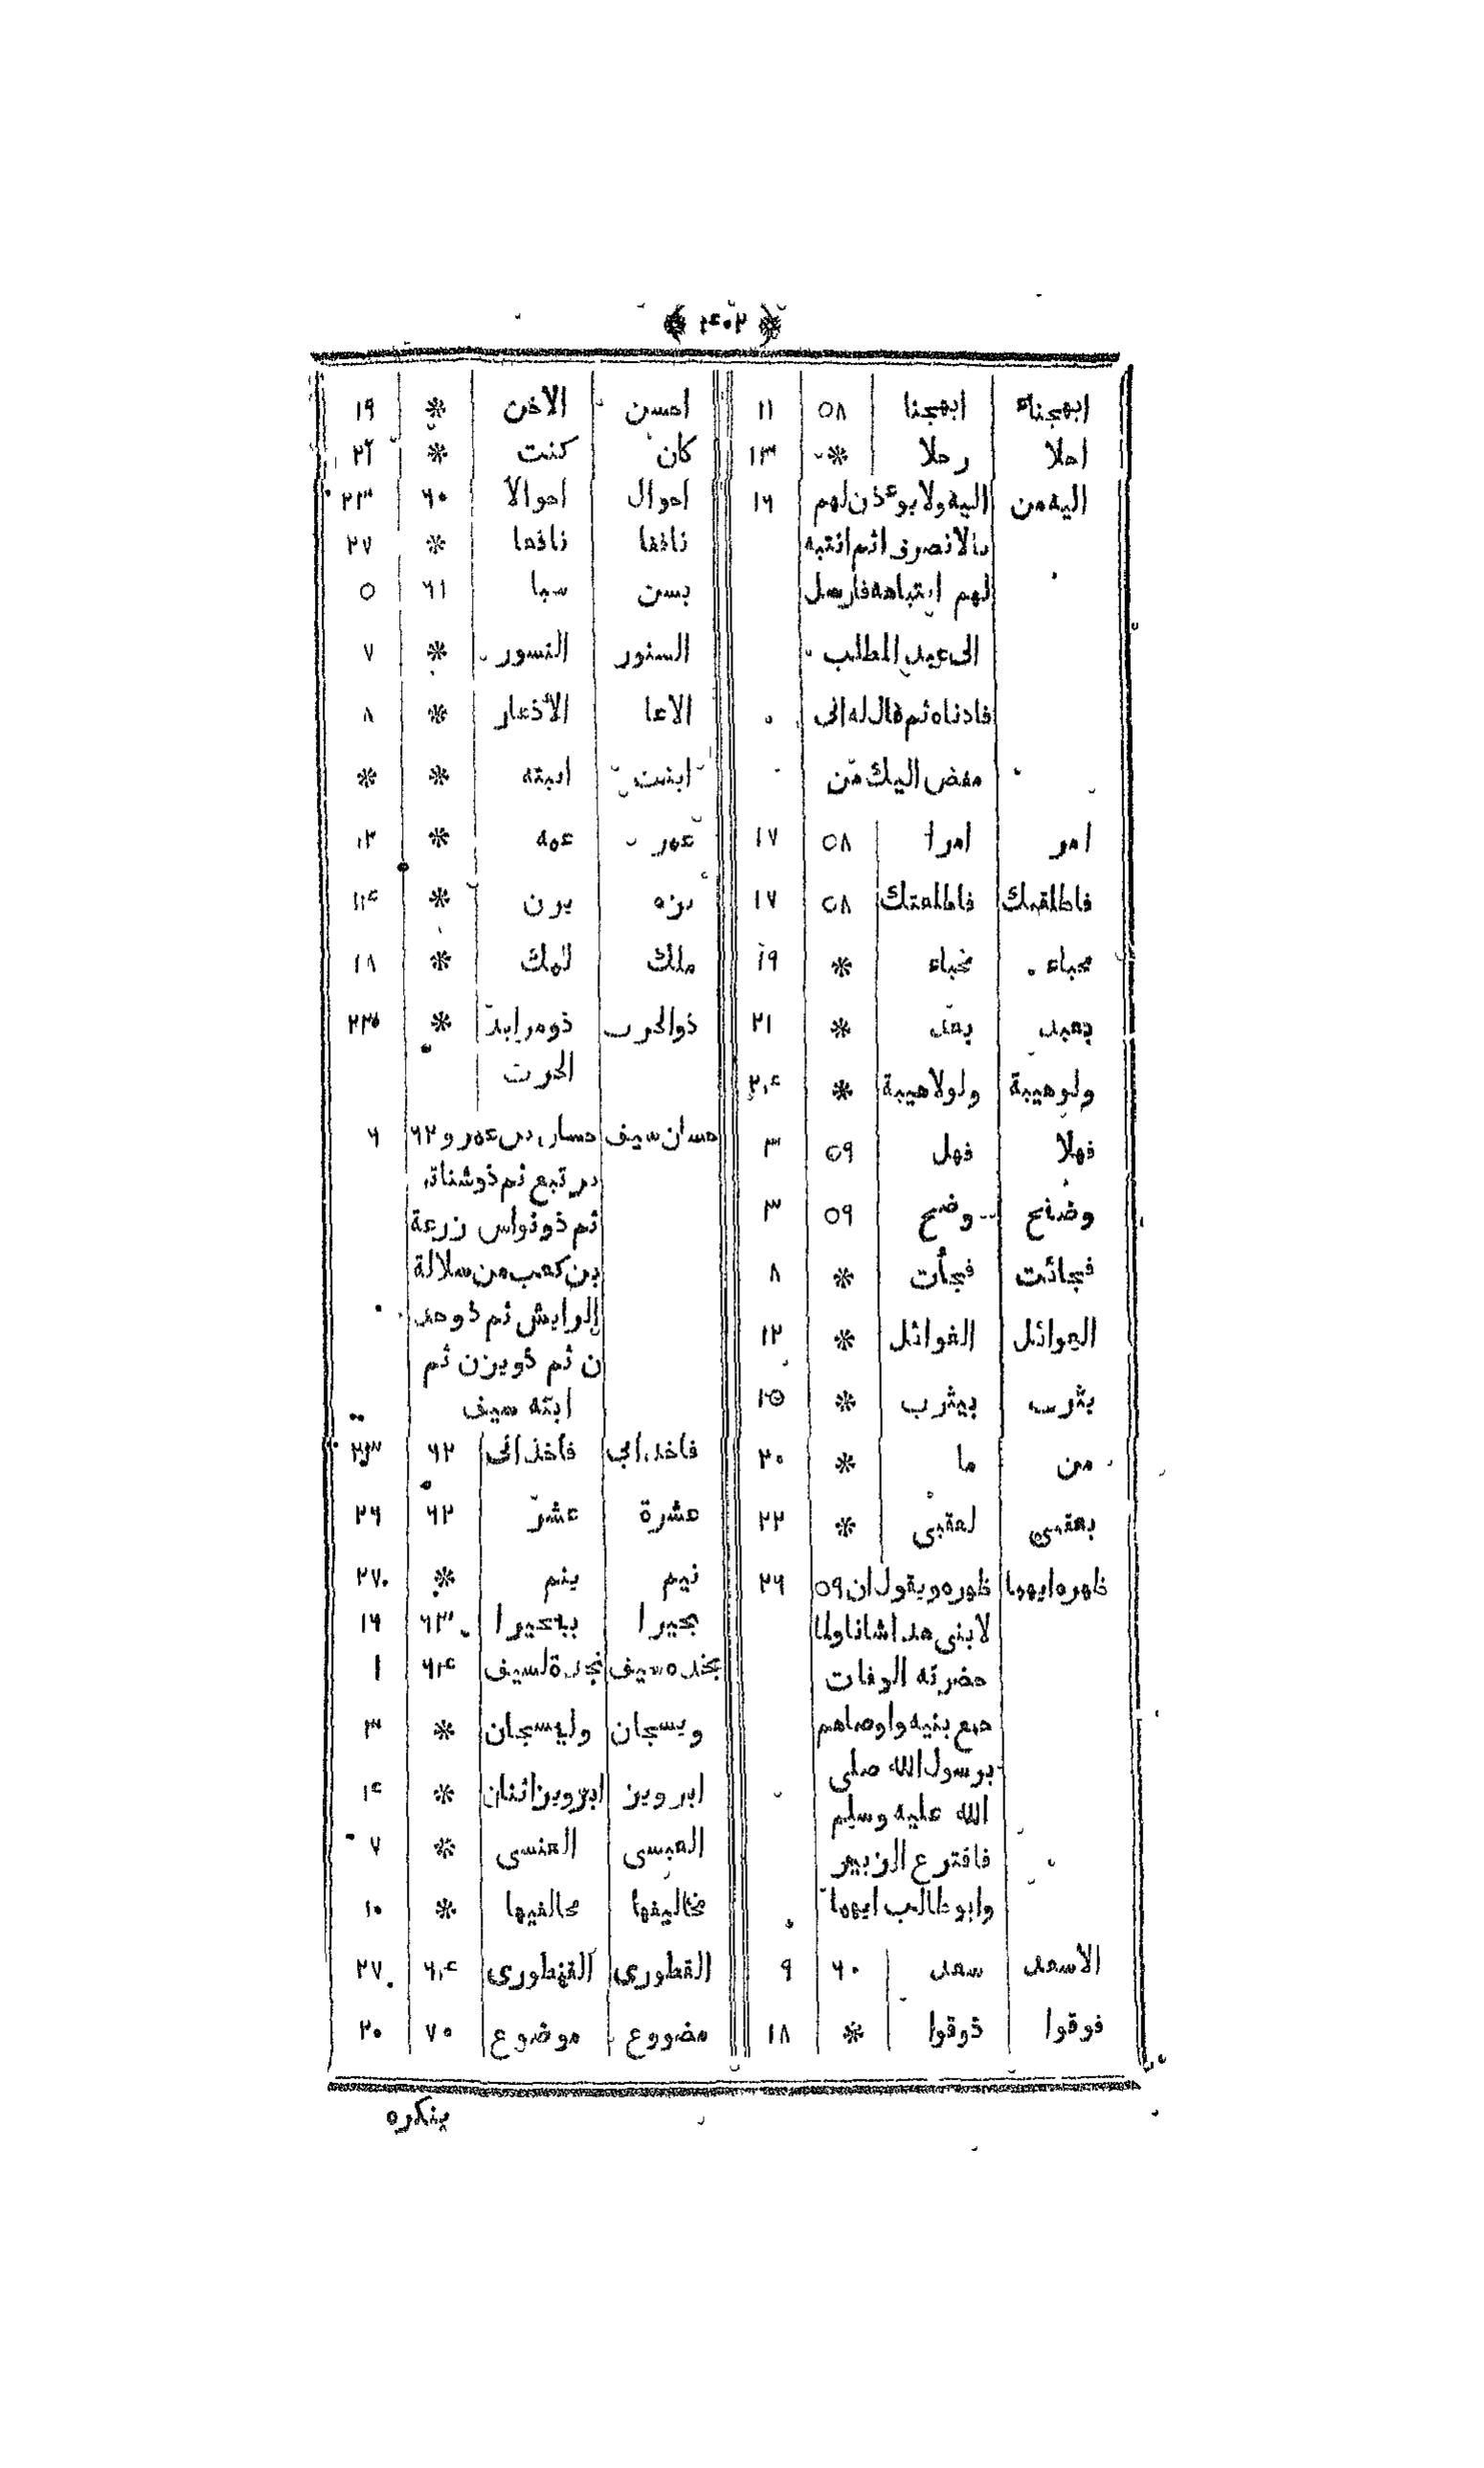 ﴿ ٤٠٢ ﴾
ابهجناء ابهجنا ٥٨ ١١
احلا رحلا * ١٣
اليه من اليه ولا يوءذن لهم ١٦
بالانصرف اثم انتبه
لهم انتباهه فارسل
الى عبد المطلب
فادناه ثم قال له انى
مفض اليك من
امر امرا ٥٨ ١٧
فاطلقتك فاطلعتك ٥٨ ١٧
محباء مخباء * ١٩
يعبد يعد * ٢١
ولوهيبة ولولاهيبة * ٢٤
فهلا فهل ٥٩ ٣
وضح ٥٩ ٣
فجائت فجأت * ٨
العوائل الغوائل * ١٢
يثرب بيثرب * ١٥
من ما * ٢٠
بعقبى لعقبى * ٢٢
ظهره ايهما ظهره ويقول ان ٥٩ ٢٦
لابنى هذا شانا ولما
حضرته الوفات
جمع بنيه واوصاهم
برسول الله صلى
الله عليه وسلم
فاقترع الزبير
وابو طالب ايهما
الاسعد سعد ٦٠ ٩
فوقوا ذوقوا * ١٨
احسن الاخن * ١٩
كان كنت * ٢٢
احوال احوالا ٦٠ ٢٣
نافقا نافعا * ٢٧
بسن سبا ٦١ ٥
السنور النسور * ٧
الاعا الأذعار * ٨
ابنت ابنته * *
عمر عمه * ١٣
يزه يرن * ١٤
ملك لمك * ١٨
ذو الحرب ذو مرابد * ٢٣
الحرث
حسان سيف حسار بن عمرو ٦٢ ٦
بن تبع ثم ذوشناتر
ثم ذو نواس زرعة
بن كعب من سلالة
الرايش ثم ذو جد
ن ثم ذو يزن ثم
ابنه سيف
فاخذ ابى فاخذ انى ٦٢ ٢٣
عشرة عشر ٦٢ ٢٦
نيم ينم * ٢٧
بحيرا ببحيرا ٦٣ ١٦
نجده سيف نجدة لسيف ٦٤ ١
ويسجان وليسجان * ٣
ابرويز ابرويز اثنان * ٤
العبسى العنسى * ٧
مخاليفها مخالفيها * ١٠
القطورى القنطورى ٦٤ ٢٧
مضووع موضوع ٧٠ ٢٠
ينكره